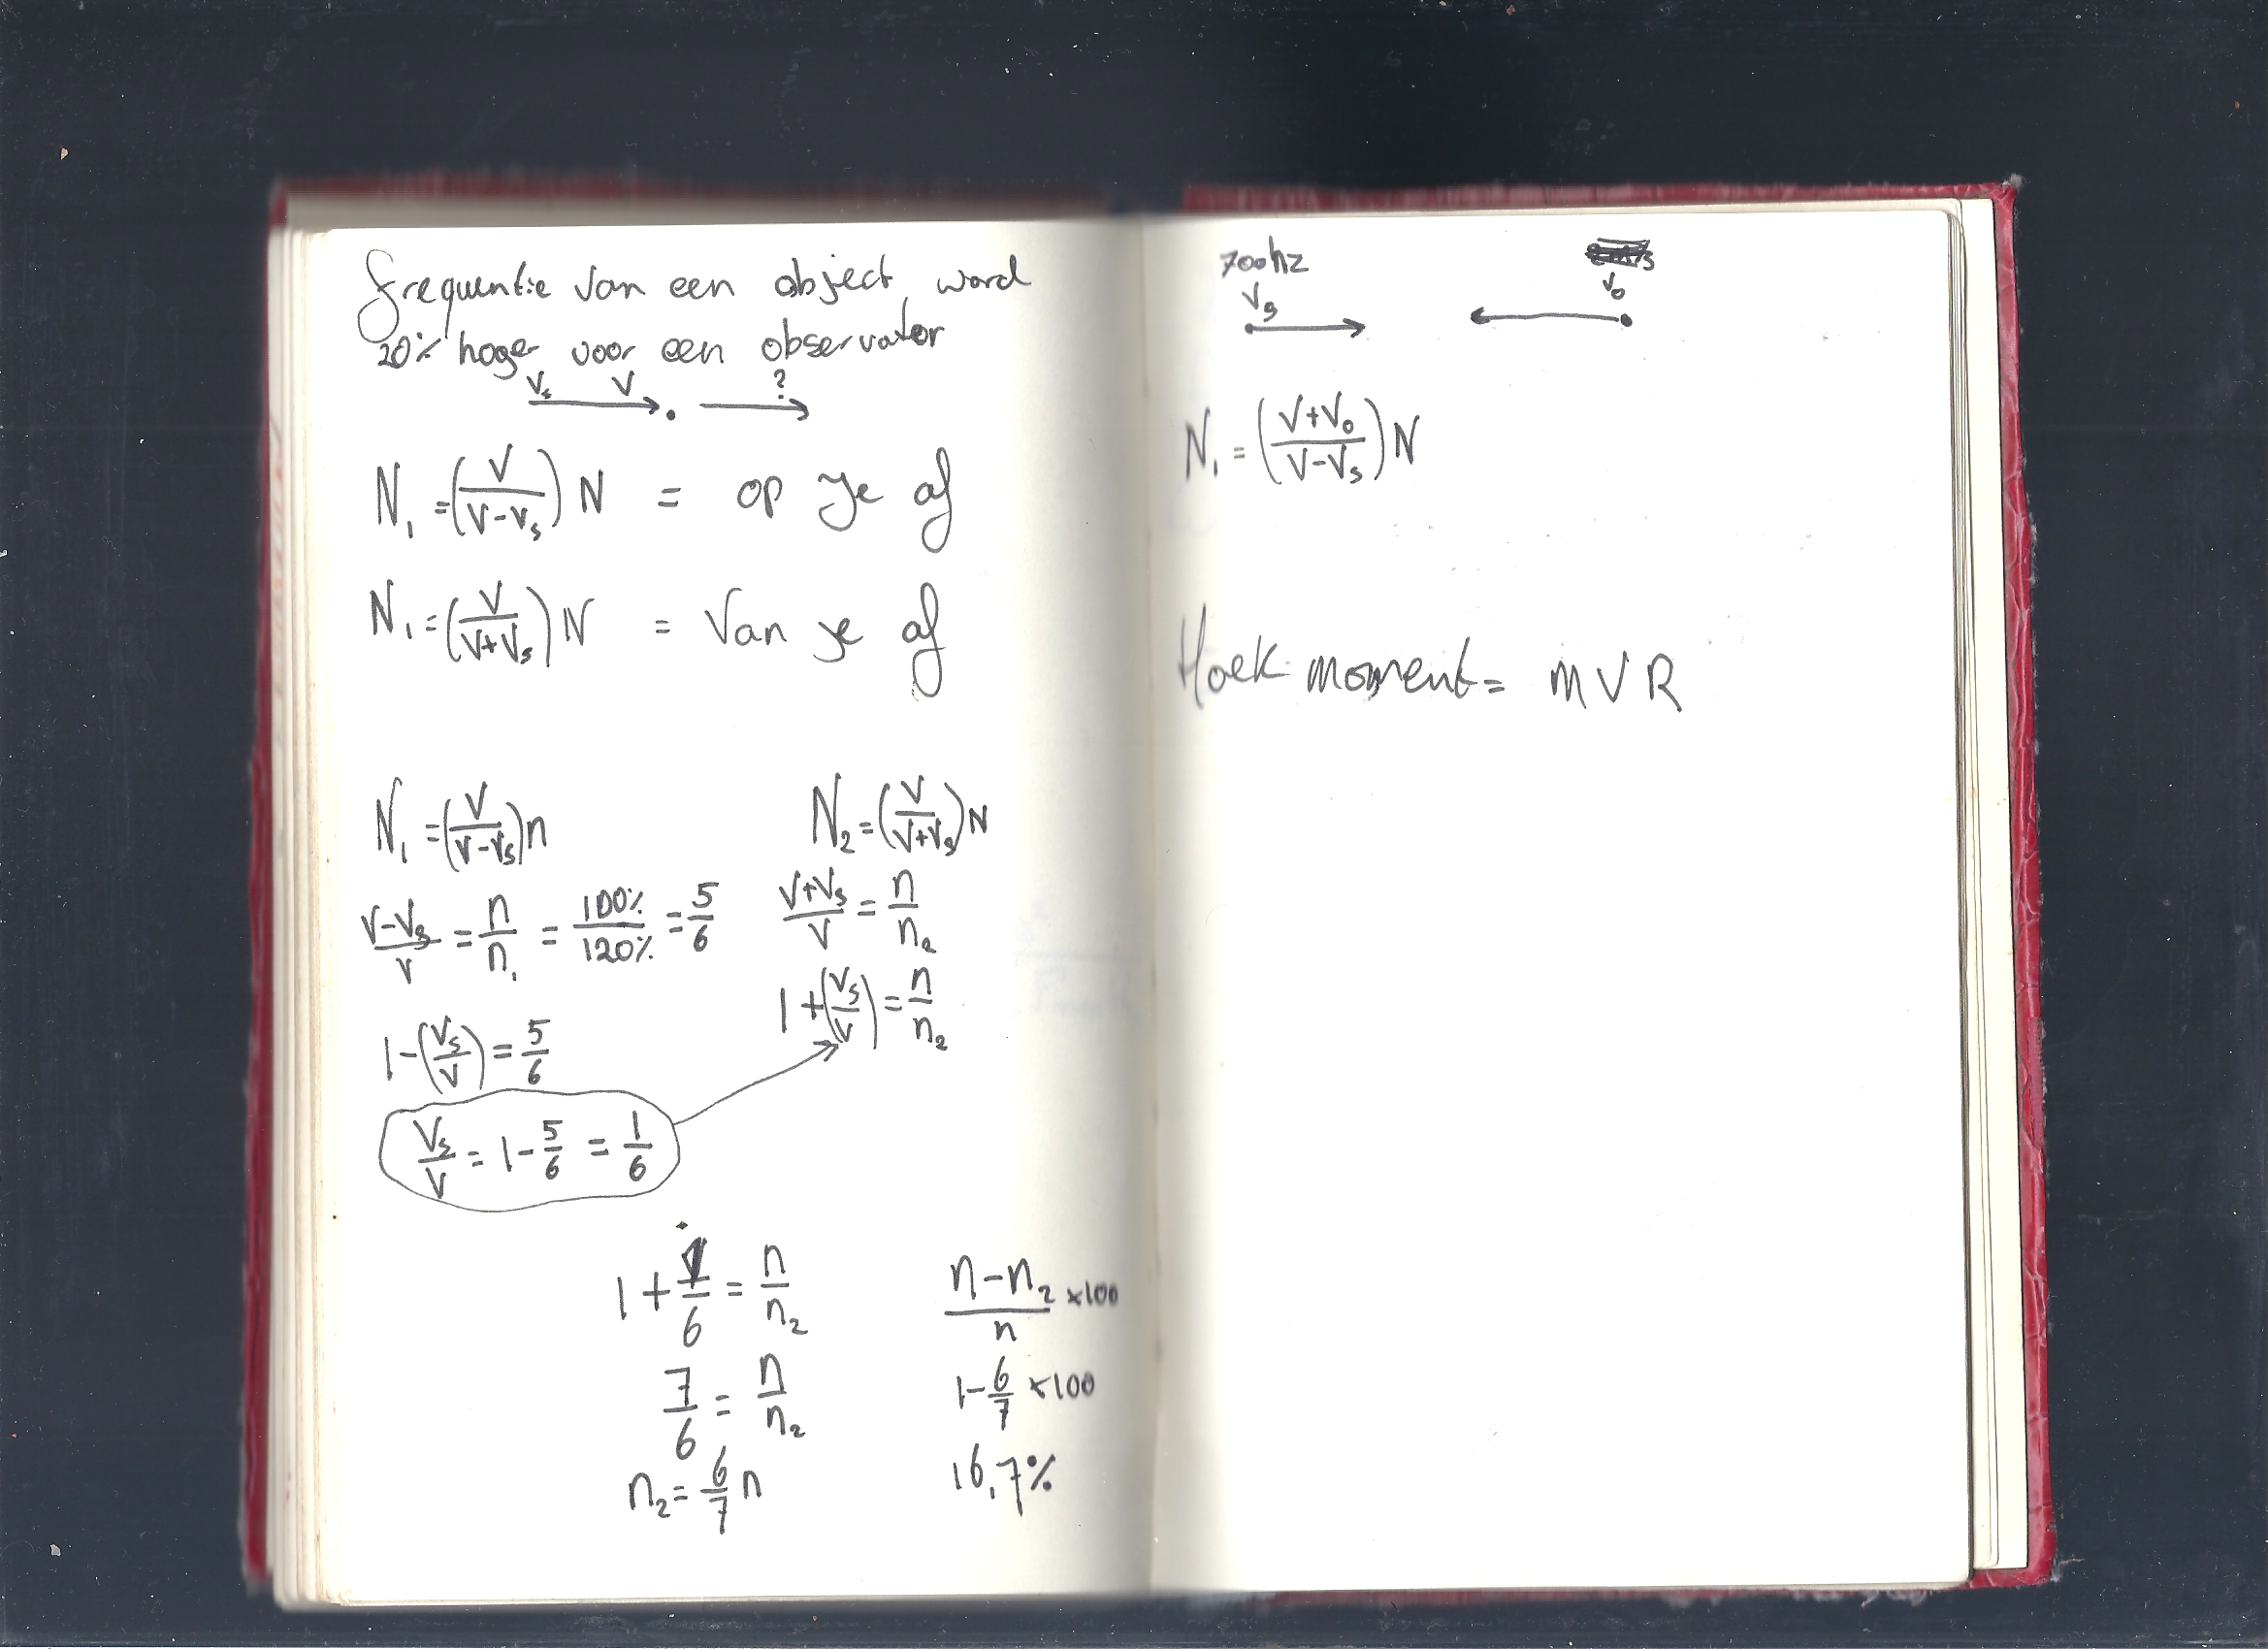 frequentie van een object word
20% hoger voor een observator
Vs V ?
N₁ = (V/(V-Vs)) N = op je af
N₁ = (V/(V+Vs)) N = Van je af
N₁ = (V/(V-Vs)) n
(V-Vs)/V = n/n₁ = 100%/120% = 5/6
1-(Vs/V) = 5/6
Vs/V = 1-5/6 = 1/6
N₂ = (V/(V+Vs)) N
(V+Vs)/V = n/n₂
1+(Vs/V) = n/n₂
1+1/6 = n/n₂
7/6 = n/n₂
n₂ = 6/7 n
(n-n₂)/n ×100
1-6/7 ×100
16,7%
700hz
Vs
Vo
N₁ = ((V+Vo)/(V-Vs)) N
Hoek moment = m V R